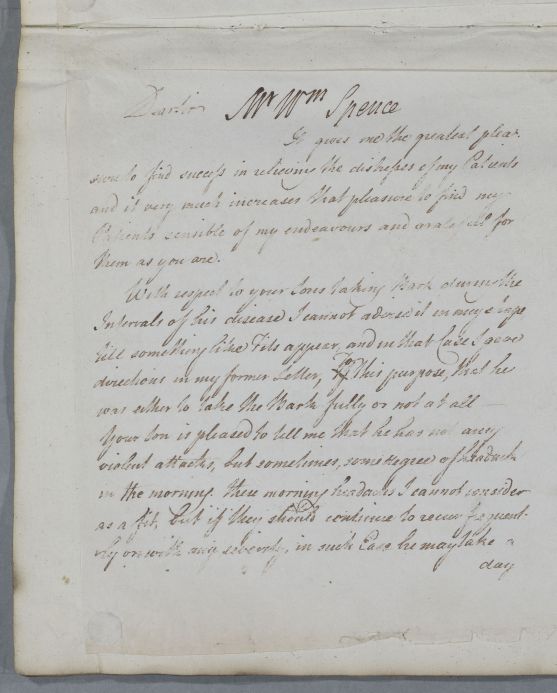 Dear Sir Mr Wm Spence
It gives me the greatest plea-
sure to find success in relieving the distresses of my Patients
and it very much increases that pleasure to find my
Patients sensible of my endeavours and gratefull for
them as you are.
With respect to your Sons taking Bark during the
Intervals of his disease I cannot advise it in any shape
till something like Fits appear, and in that Case I gave
directions in my former Letter, for this purpose, that he
was either to take the Bark fully or not at all —
Your Son is pleased to tell me that he has not any
violent attacks, but sometimes, some degree of headach
in the morning. These morning headachs I cannot consider
as a fit, but if they should continue to recur frequent-
ly or with any severity, in such Case he may take a
day